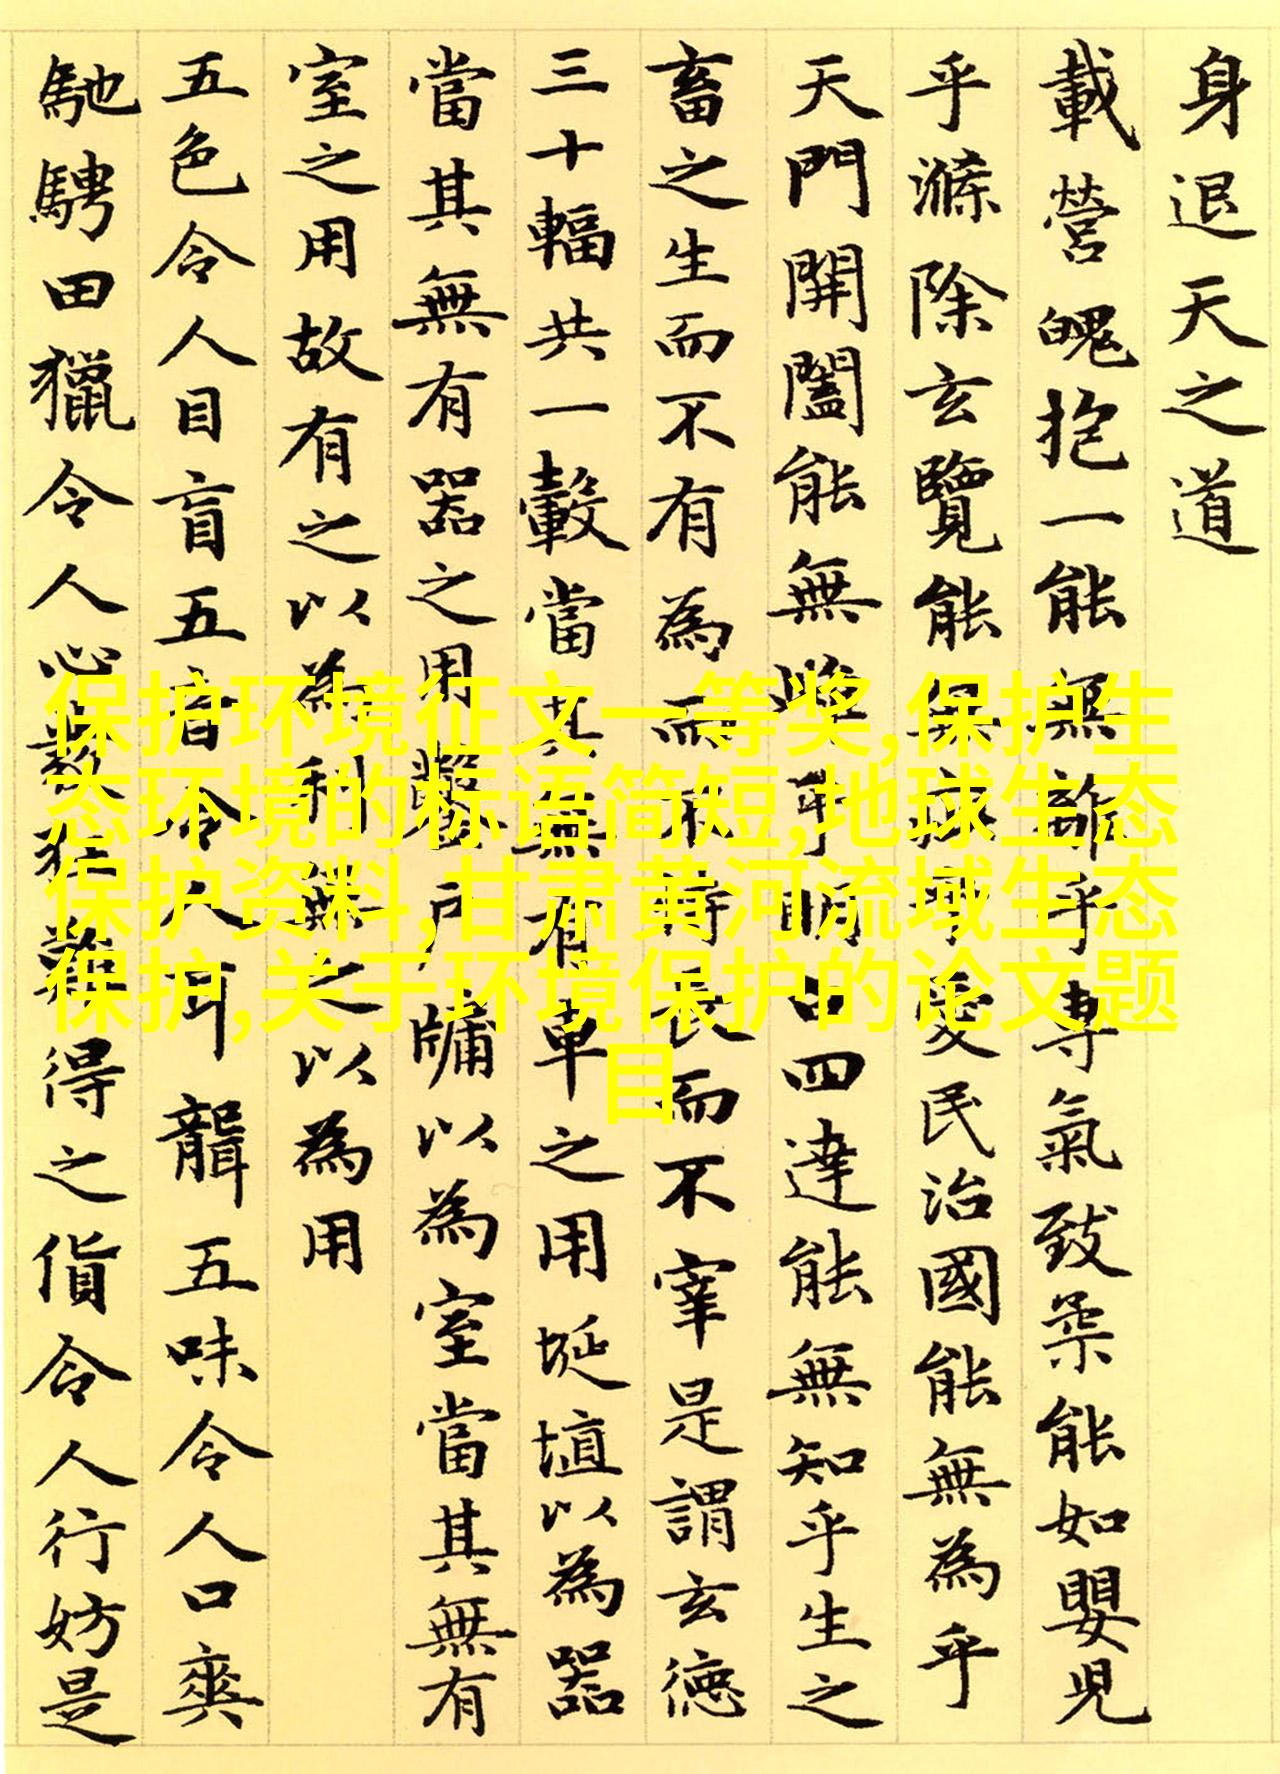 身退天之道
載營魄抱一能無離乎專氣致柔能如嬰兒
乎滌除玄覽能無疵乎愛民治國能無為乎
天門開闔能無雌乎明白四達能無知乎生之
畜之生而不有為而不恃長而不宰是謂玄德
三十輻共一轂當其無有車之用埏埴以為器
當其無有器之用鑿戶牖以為室當其無有
室之用故有之以為利無之以為用
五色令人目盲五音令人耳聾五味令人口爽
馳騁田獵令人心發狂難得之貨令人行妨是
保护环境征文一等奖,保护生
态环境的标语简短,地球生态
保护资料,甘肃黄河流域生态
保护,关于环境保护的论文题
目